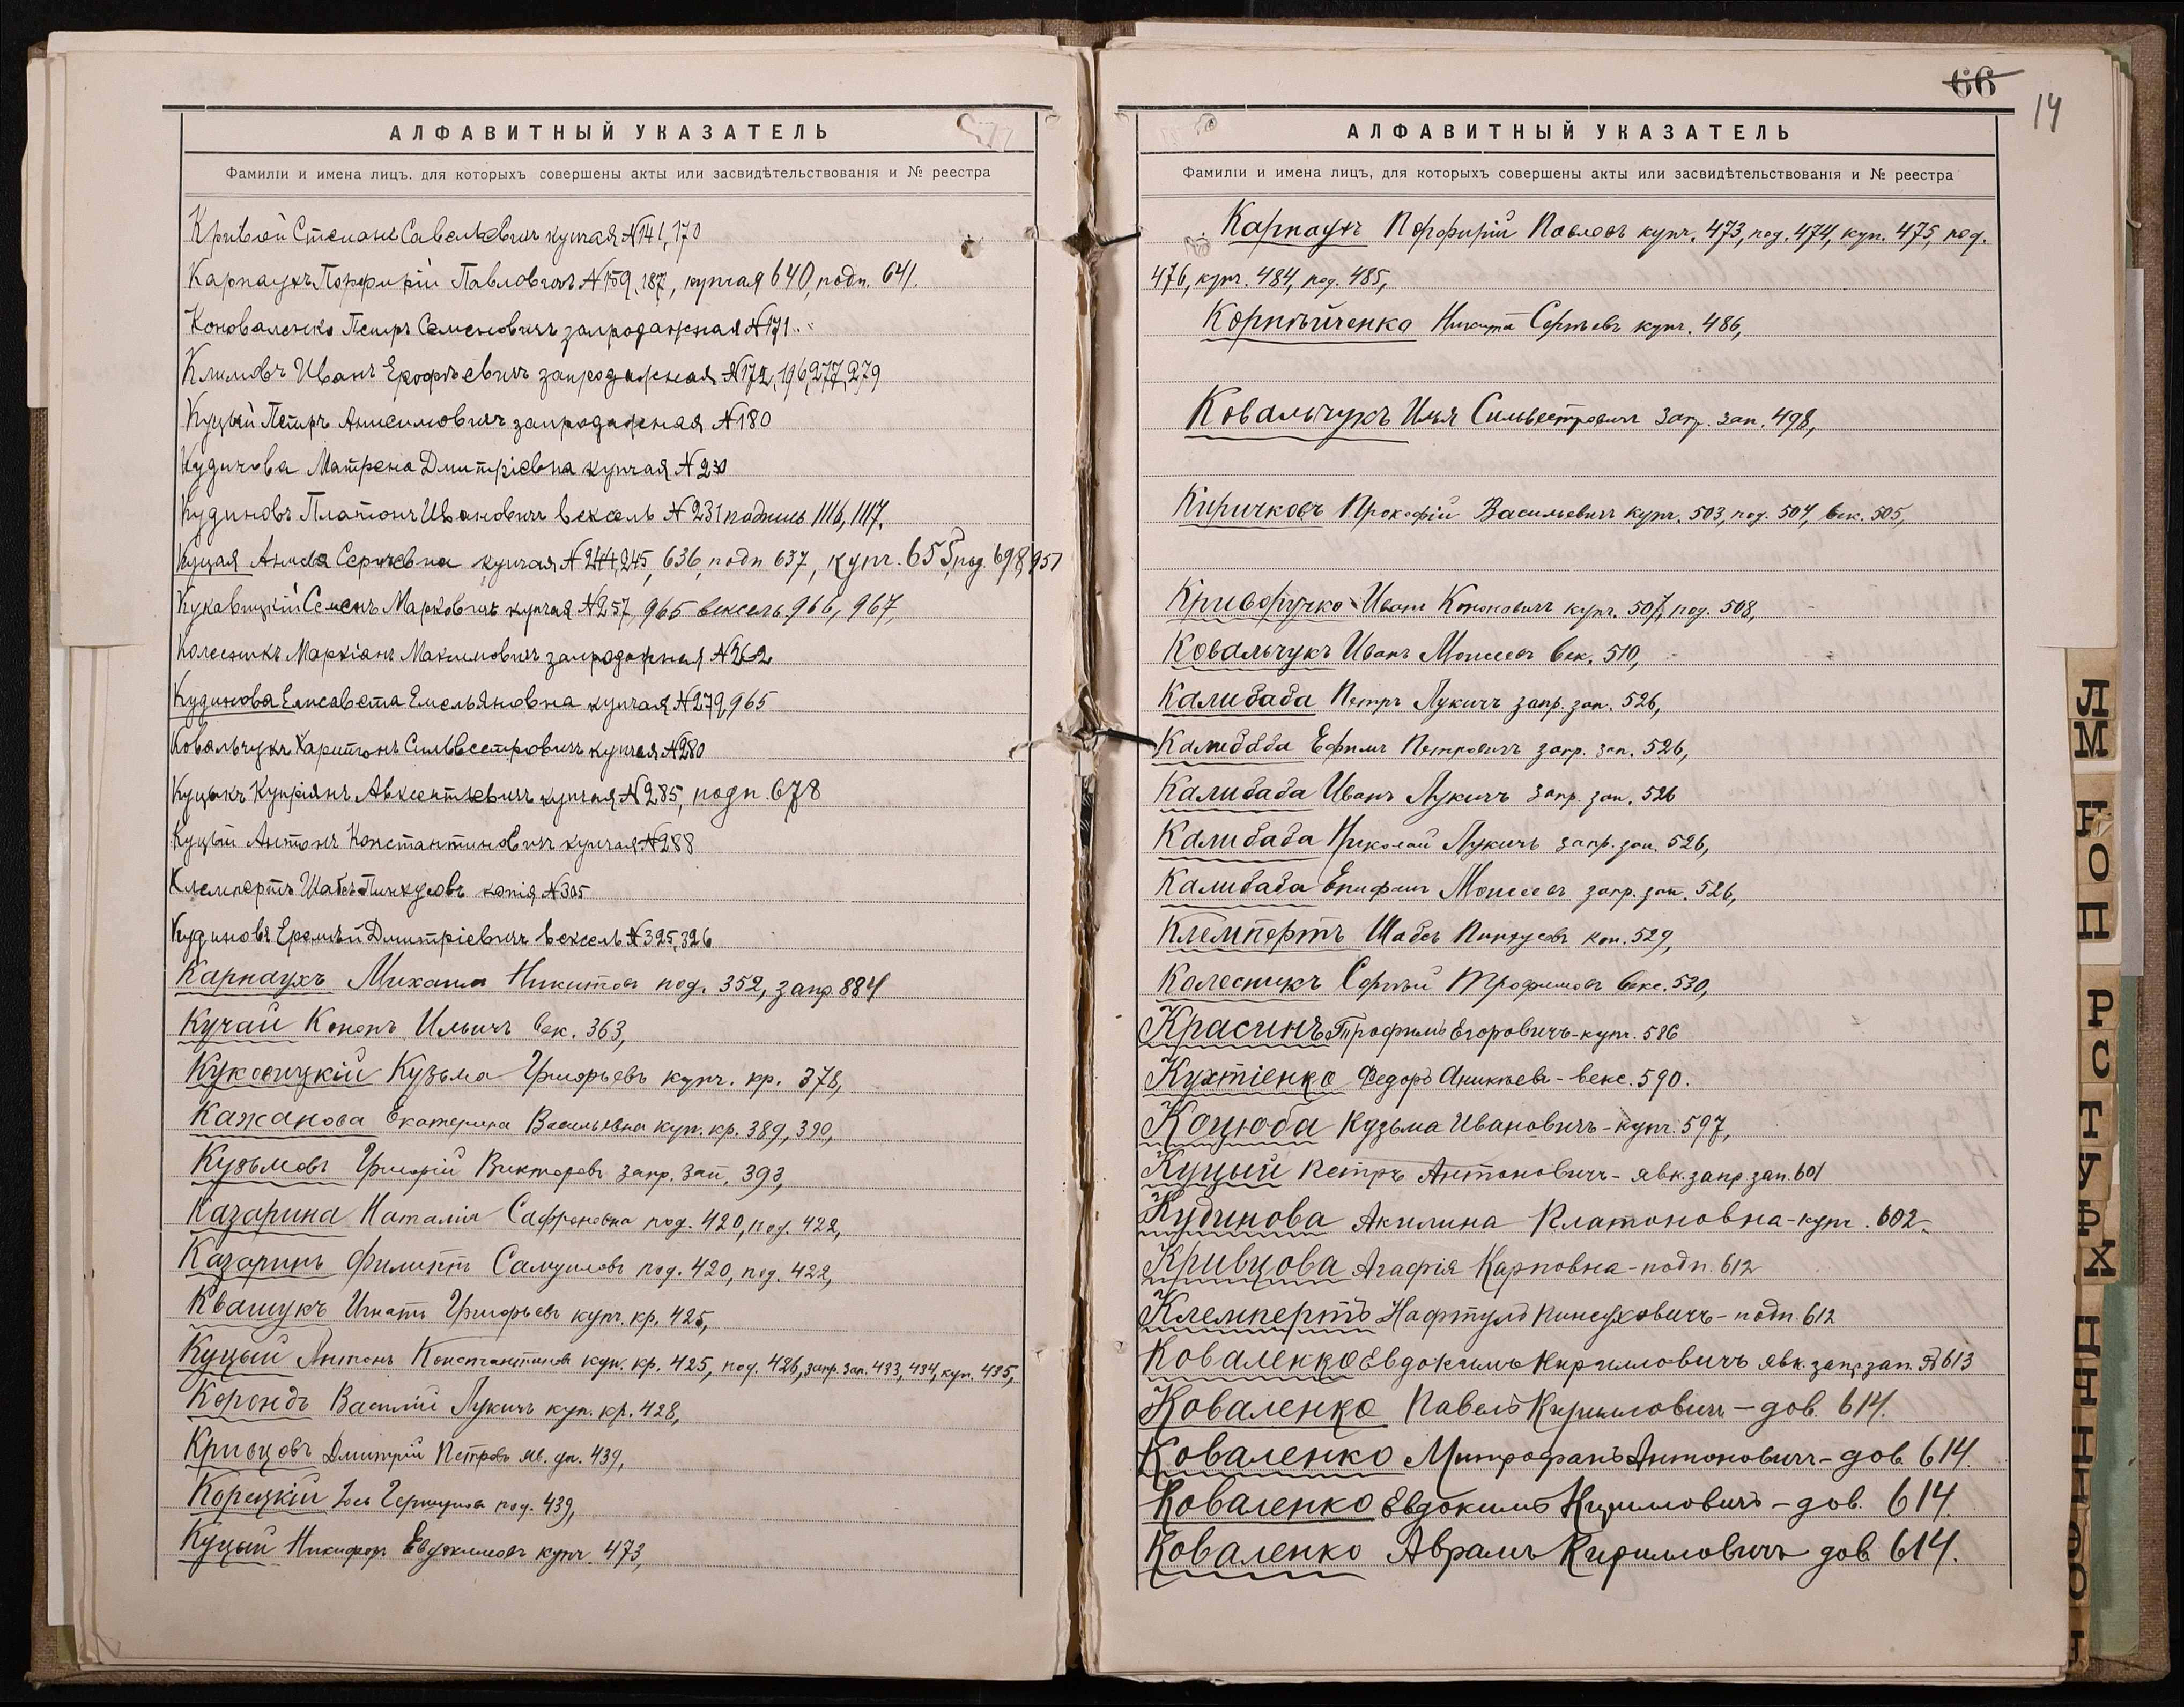 АЛФАВИТНЫЙ УКАЗАТЕЛЬ
Фамиліи и имена лицъ, для которыхъ совершены акты или засвидѣтельствованія и № реестра
Кривой Степанъ Савельевичъ купчая №141, 170
Карпаухъ Порфирій Павловичъ №159, 187, купчая 640, подп. 641.
Коноваленко Петръ Семеновичъ запродажная №171.
Климовъ Иванъ Ерофѣевичъ запродажная №172, 196, 277, 279
Куцый Петръ Анисимовичъ запродажная №180
Кудинова Матрена Дмитріевна купчая №230
Кудиновъ Платонъ Ивановичъ вексель №231 подпись 1116, 1117.
Куцая Анна Сергѣевна купчая №244, 245, 636, подп 637, купч. 655, под. 698, 951
Кукавицкій Семенъ Марковичъ купчая №257, 965 вексель 966, 967,
Колесникъ Маркіанъ Максимовичъ запродажная №262
Кудинова Елисавета Емельяновна купчая №279, 965
Ковальчукъ Харитонъ Сильвестровичъ купчая №280
Куцыкъ Купріянъ Авксентьевичъ купчая №285, подп. 678
Куцый Антонъ Константиновичъ купчая №288
Клемпертъ Шабсъ Пинкусовъ копія №305
Кудиновъ Еремѣй Дмитріевичъ вексель №325, 326
Карпаухъ Михаилъ Никитовъ под. 352, запр 884
Кучай Кононъ Ильичъ век. 363,
Куковицкій Кузьма Григорьевъ купч. кр. 378,
Кажанова Екатерина Васильевна куп. кр. 389, 390,
Кузьмовъ Григорій Викторовъ запр. зап. 393,
Казарина Наталія Сафроновна под. 420, под. 422,
Казаринъ Филиппъ Самуиловъ под. 420, под. 422,
Квашукъ Игнатъ Григорьевъ купч. кр. 425,
Куцый Антонъ Константиновъ куп. кр. 425, под. 426, запр. зап. 433, 434, куп. 435,
Корондъ Василій Лукичъ куп. кр. 428,
Кривцовъ Дмитрій Петровъ 439,
Корецкій Іось под. 439,
Куцый Никифоръ Евдокимовъ купч. 473,
66
14
АЛФАВИТНЫЙ УКАЗАТЕЛЬ
Фамиліи и имена лицъ, для которыхъ совершены акты или засвидѣтельствованія и № реестра
Карпаухъ Порфирій Павловъ купч. 473, под. 474, куп. 475, под.
476, купч. 484, под. 485,
Корнѣйченко Никита Сергѣевъ купч. 486,
Ковальчукъ Илья Сильвестровичъ запр. зап. 498,
Киричковъ Прокофій Васильевичъ купч. 503, под. 504, век. 505,
Криворучко Иванъ Кононовичъ купч. 507, под. 508,
Ковальчукъ Иванъ Моисеевъ век. 510,
Калибаба Петръ Лукичъ запр. зап. 526,
Калибаба Ефимъ Петровичъ запр. зап. 526,
Калибаба Иванъ Лукичъ запр. зап. 526
Калибаба Николай Лукичъ запр. зап. 526,
Калибаба Епифанъ Моисеевъ запр. зап. 526,
Клемпертъ Шабсъ Пинкусовъ коп. 529,
Колесникъ Сергѣй Трофимовъ векс. 530,
Красинъ Трофимъ Егоровичъ - купч. 586
Кухтіенко Федоръ Аникѣевъ - векс. 590.
Коцюба Кузьма Ивановичъ - купч. 597,
Куцый Петръ Антоновичъ - явк. запр зап. 601
Кудинова Акилина Платоновна - купч. 602.
Кривцова Агафія Карповна - подп. 612
Клемпертъ Нафтулъ Пинсуховичъ - подп. 612
Коваленко Евдокимъ Кирилловичъ явк. запр зап. № 613
Коваленко Павелъ Кирилловичъ - дов. 614.
Коваленко Митрофанъ Антоновичъ - дов. 614.
Коваленко Евдокимъ Кирилловичъ - дов. 614.
Коваленко Аврамъ Кирилловичъ дов 614.
Л
М
Н
О
П
Р
С
Т
У
Ф
Х
Ц